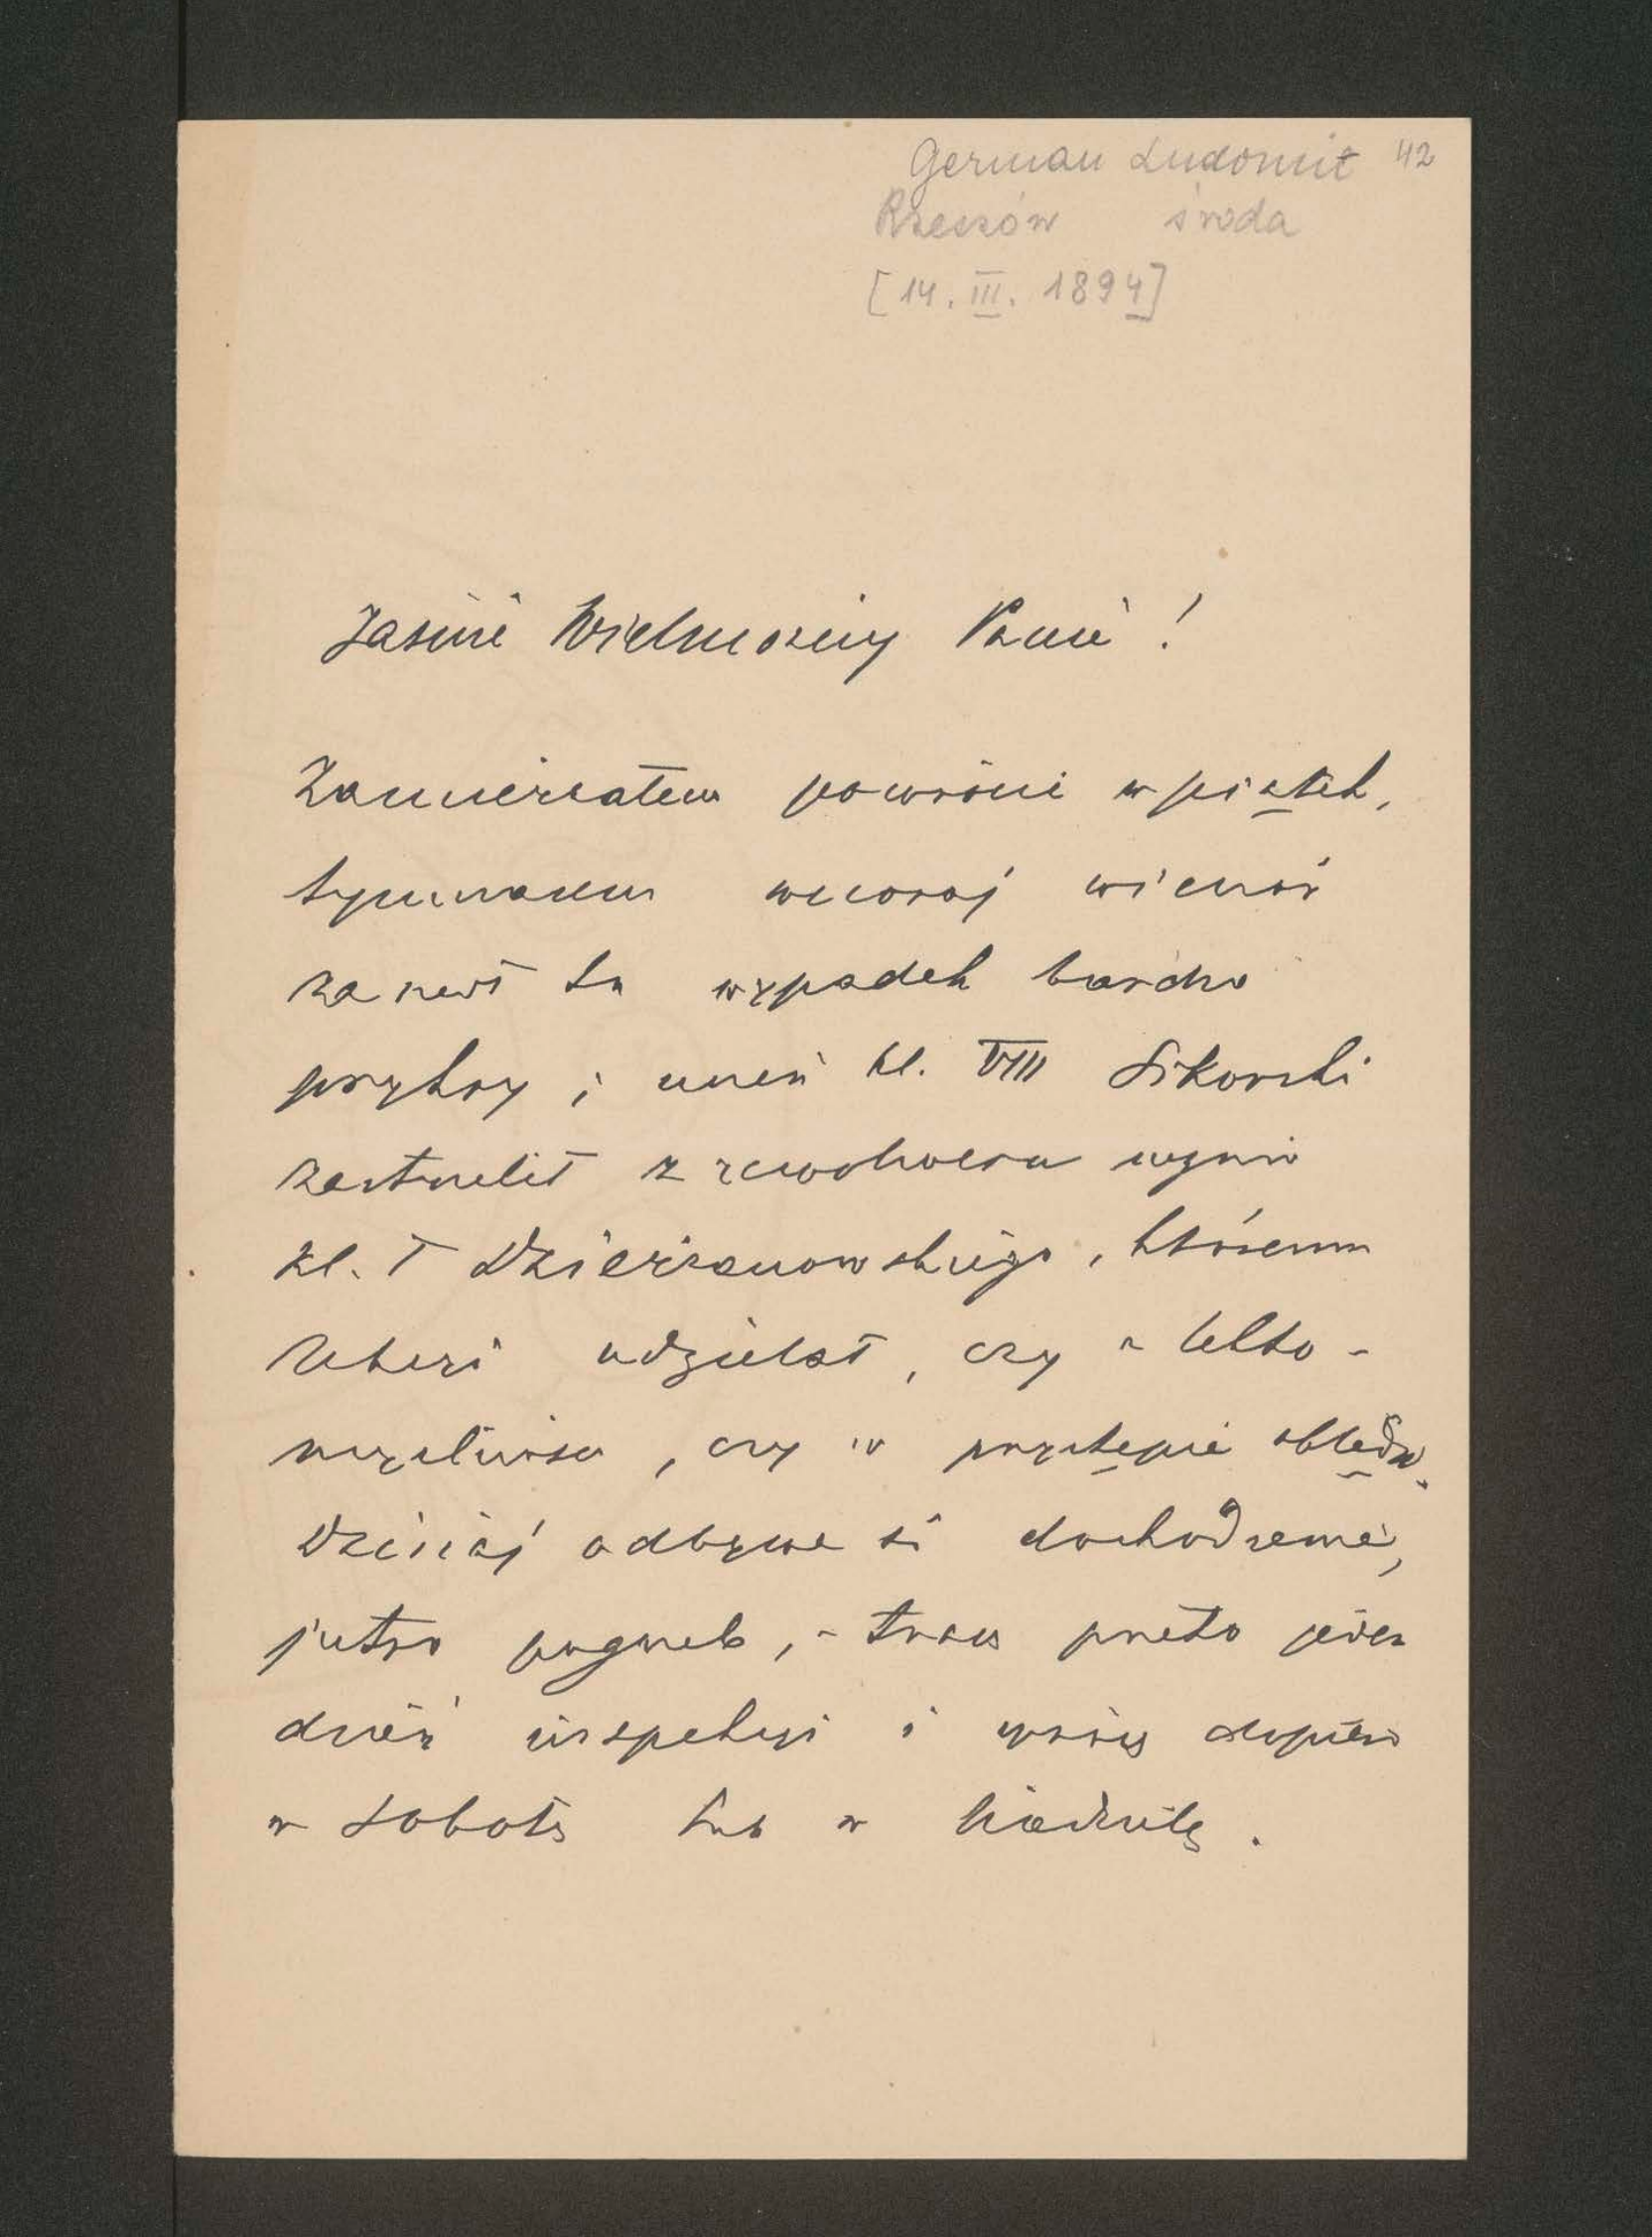 German Ludomił 42
Rzeszów środa
[14. III. 1894]
Jaśnie Wielmożny Panie!
Zamierzałem powrócić w piątek,
tymczasem wczoraj wieczór
zaszedł tu wypadek bardzo
przykry; uczeń kl. VIII Sikorski
zastrzelił z rewolweru ucznia
kl. I Dzierżanowskiego, któremu
lekcji udzielał, czy z lekko-
myślności, czy w przystępie obłędu.
Dzisiaj odbywa się dochodzenie,
jutro pogrzeb, – tracę przeto jeden
dzień inspekcji i wrócę dopiero
w sobotę lub w niedzielę.